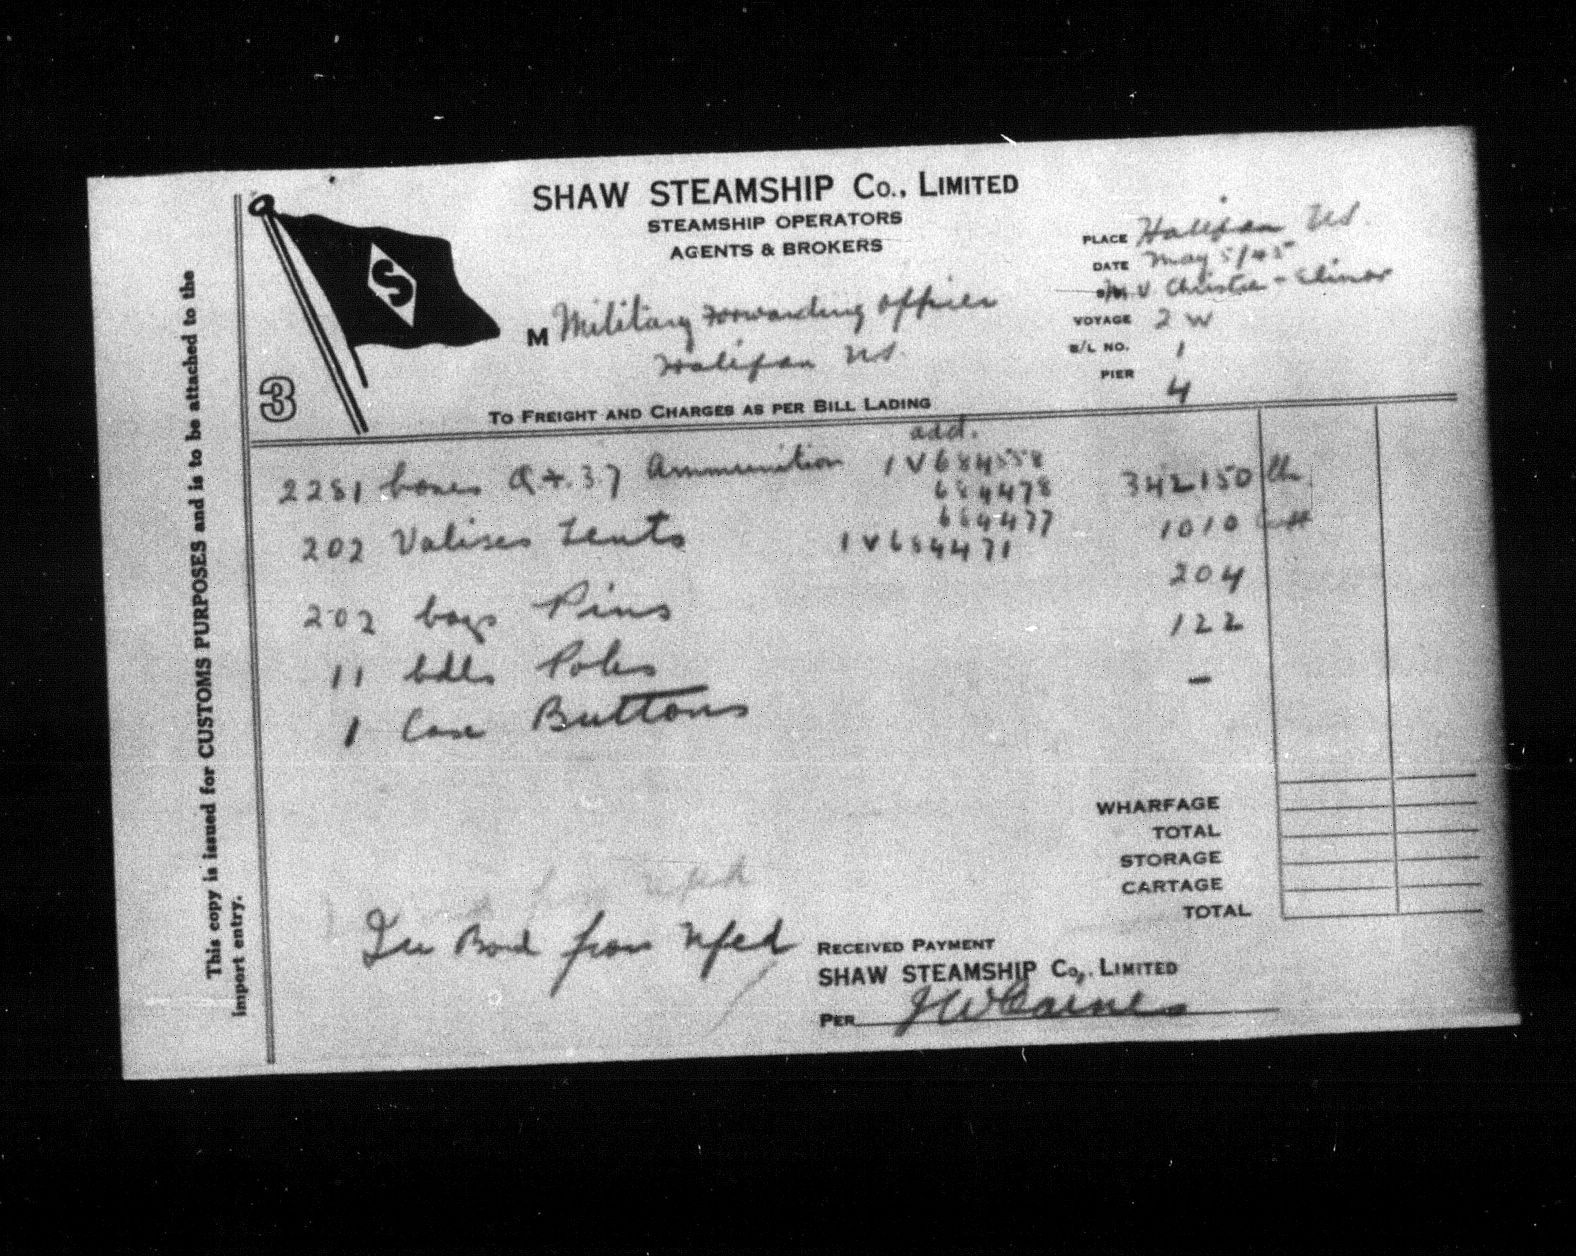 SHAW STEAMSHIP Co., LIMITED
STEAMSHIP OPERATORS
AGENTS & BROKERS
PLACE Halifax NS
DATE May 5/45
M.V. Christie - Elinor
VOYAGE 2 W
B/L NO. 1
PIER 4
M Military Forwarding Officer
Halifax NS.
3
TO FREIGHT AND CHARGES AS PER BILL LADING
add.
2281 boxes Q.F. 3.7 Ammunition 1V684558 342150 lbs.
684478
202 Valises Tents 684477 1010
1V684471
202 bags Pins 204
11 bdls Poles 122
1 Case Buttons -
WHARFAGE
TOTAL
STORAGE
CARTAGE
TOTAL
In Bond from Nfld
RECEIVED PAYMENT
SHAW STEAMSHIP Co., LIMITED
PER J W Caines
This copy is issued for CUSTOMS PURPOSES and is to be attached to the
import entry.